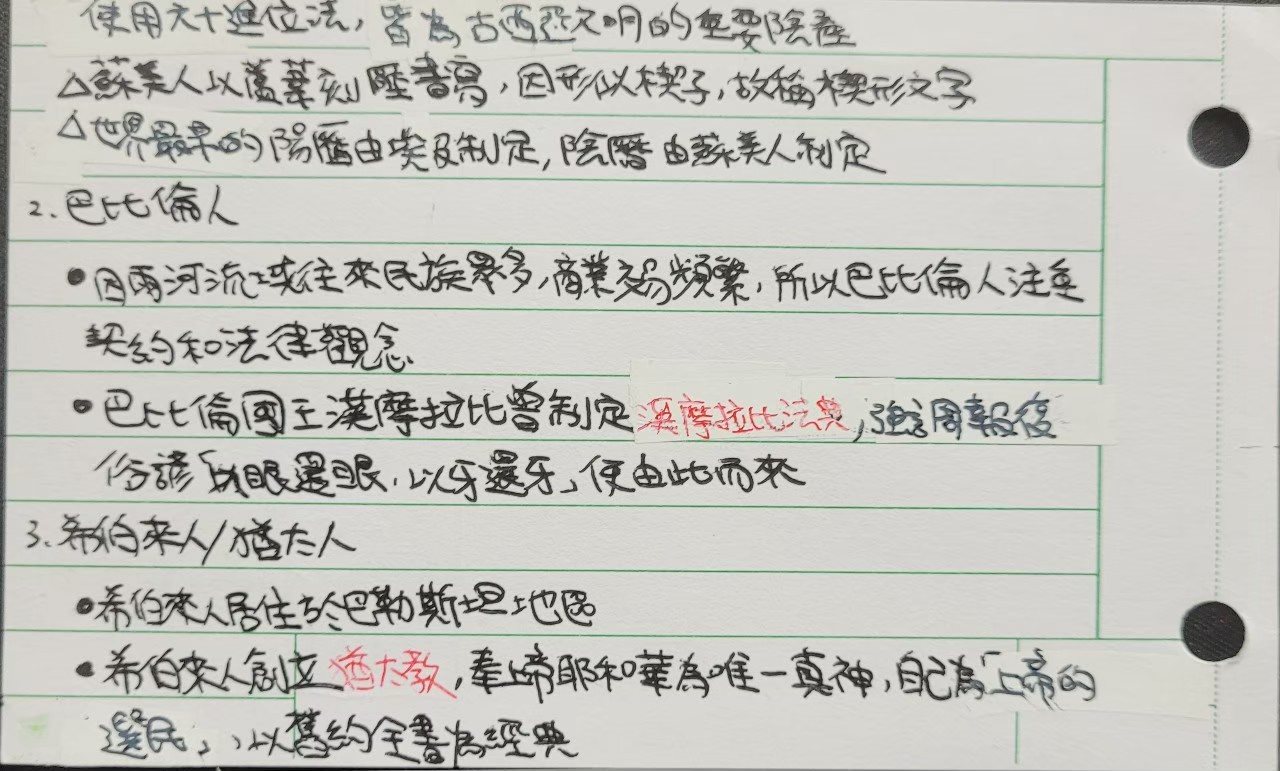 使用六十進位法，皆為古西亞文明的重要陰產
△蘇美人以蘆葦刻壓書寫，因形似楔子，故稱楔形文字
△世界最早的陽曆由埃及制定，陰曆由蘇美人制定
2. 巴比倫人
•因兩河流域往來民族眾多，商業交易頻繁，所以巴比倫人注重
契約和法律觀念
•巴比倫國王漢摩拉比曾制定漢摩拉比法典，強調報復
俗諺「以眼還眼，以牙還牙」便由此而來
3. 希伯來人/猶太人
•希伯來人居住於巴勒斯坦地區
•希伯來人創立猶太教，奉上帝耶和華為唯一真神，自己為「上帝的
選民」，以舊約全書為經典